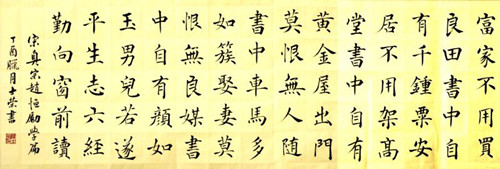 富家不用買
良田書中自
有千鍾粟安
居不用架高
堂書中自有
黃金屋出門
莫恨無人随
書中車馬多
如簇娶妻莫
恨無良媒書
中自有顏如
玉男兒若遂
平生志六經
勤向窗前讀
宗真宗趙恒勵學篇
丁酉臘月士荣書